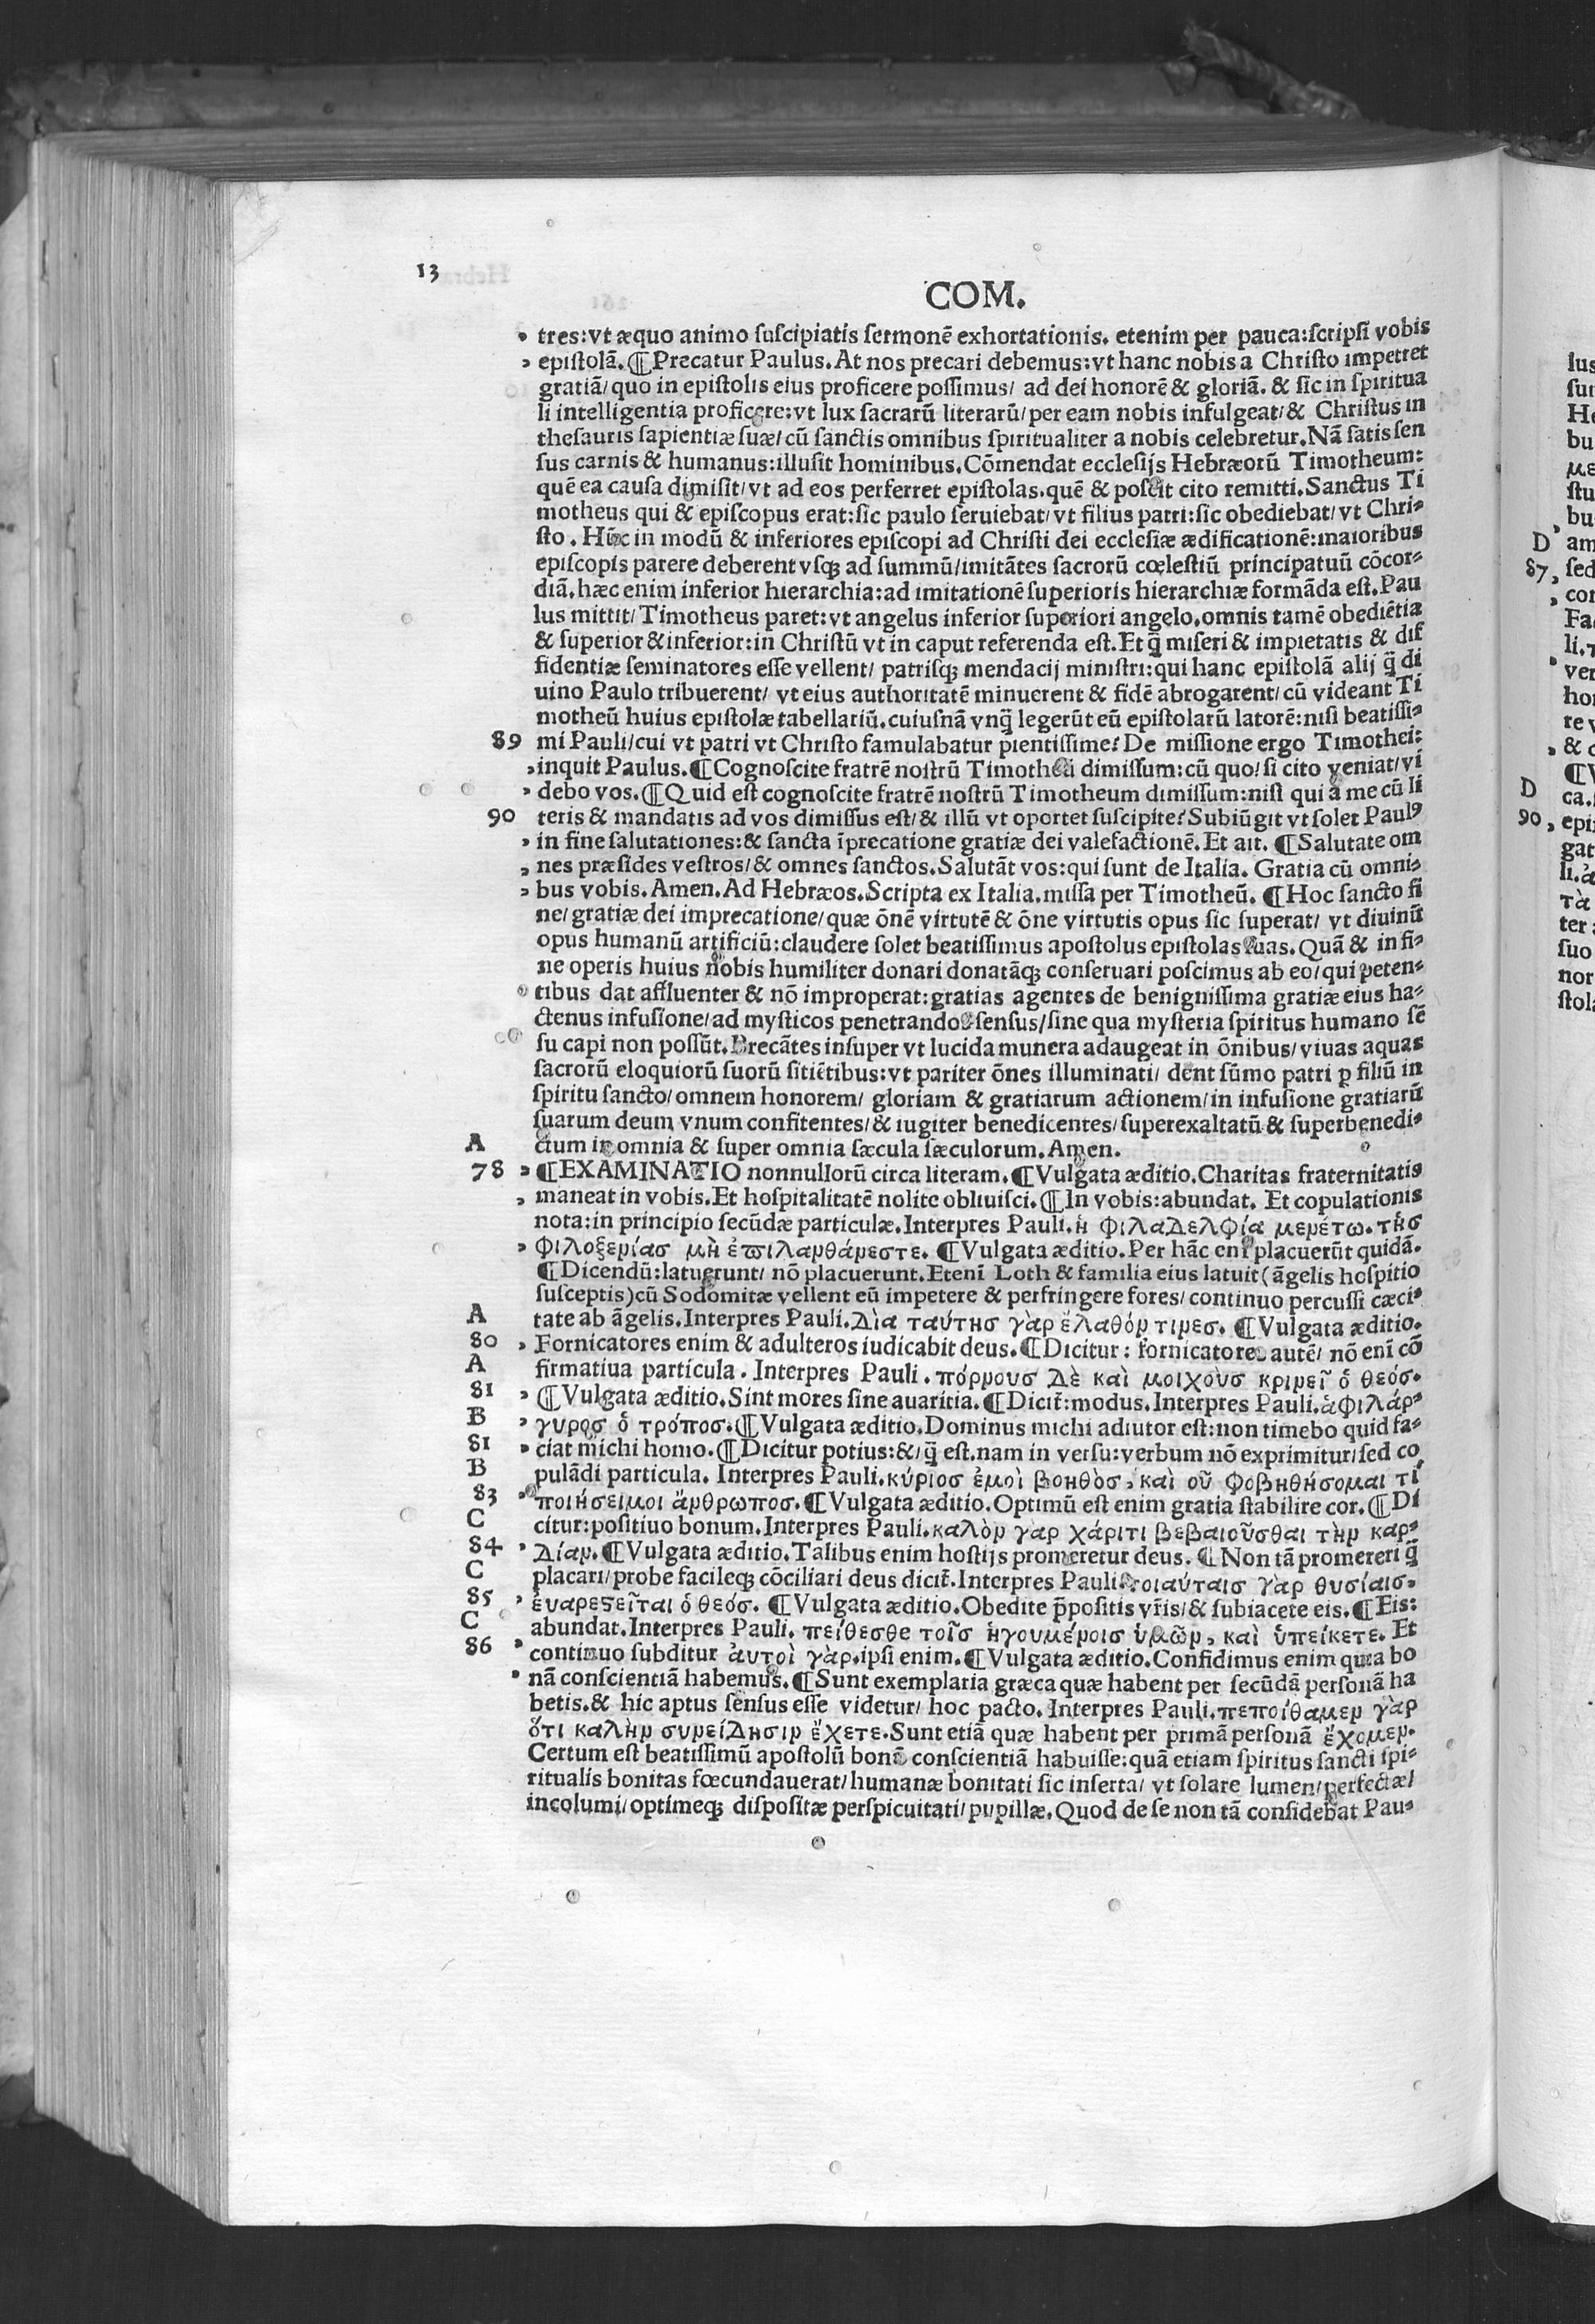 13
COM.
tres:vt æquo animo ſuſcipiatis ſermonē exhortationis. etenim per pauca:ſcripſi vobis
epiſtolā.¶Precatur Paulus. At nos precari debemus:vt hanc nobis a Chriſto impetret
gratiā/quo in epiſtolis eius proficere poſſimus/ ad dei honorē & gloriā. & ſic in ſpiritua
li intelligentia proficere:vt lux ſacrarū literarū/per eam nobis infulgeat/& Chriſtus in
theſauris ſapientiæ ſuæ/cū ſanctis omnibus ſpiritualiter a nobis celebretur.Nā ſatis ſen
ſus carnis & humanus:illuſit hominibus.Cōmendat eccleſijs Hebræorū Timotheum:
quē ea cauſa dimiſit/vt ad eos perferret epiſtolas.quē & poſcit cito remitti.Sanctus Ti
motheus qui & epiſcopus erat:ſic paulo ſeruiebat/vt filius patri:ſic obediebat/vt Chri-
ſto. Hūc in modū & inferiores epiſcopi ad Chriſti dei eccleſiæ ædificationē:maioribus
epiſcopis parere deberent vſqꝫ ad ſummū/imitātes ſacrorū cœleſtiū principatuū cōcor-
diā.hæc enim inferior hierarchia:ad imitationē ſuperioris hierarchiæ formāda eſt.Pau
lus mittit/Timotheus paret:vt angelus inferior ſuperiori angelo.omnis tamē obediētia
& ſuperior & inferior:in Chriſtū vt in caput referenda eſt.Et q̄ miſeri & impietatis & dif
fidentiæ ſeminatores eſſe vellent/ patriſqꝫ mendacij miniſtri:qui hanc epiſtolā alij q̄ di
uino Paulo tribuerent/ vt eius authoritatē minuerent & fidē abrogarent/cū videant Ti
motheū huius epiſtolæ tabellariū.cuiuſnā vnq̄ legerūt eū epiſtolarū latorē:niſi beatiſſi-
89 mi Pauli/cui vt patri vt Chriſto famulabatur pientiſſime? De miſſione ergo Timothei:
inquit Paulus.¶Cognoſcite fratrē noſtrū Timotheū dimiſſum:cū quo/ſi cito veniat/vi
debo vos.¶Quid eſt cognoſcite fratrē noſtrū Timotheum dimiſſum:niſi qui a me cū li
90 teris & mandatis ad vos dimiſſus eſt/& illū vt oportet ſuſcipite?Subiūgit vt ſolet Paulꝰ
in fine ſalutationes:& ſancta īprecatione gratiæ dei valefactionē.Et ait.¶Salutate om
nes præſides veſtros/& omnes ſanctos.Salutāt vos:qui ſunt de Italia. Gratia cū omni-
bus vobis.Amen.Ad Hebræos.Scripta ex Italia.miſſa per Timotheū.¶Hoc ſancto fi
ne/gratiæ dei imprecatione/quæ ōnē virtutē & ōne virtutis opus ſic ſuperat/ vt diuinū
opus humanū artificiū:claudere ſolet beatiſſimus apoſtolus epiſtolas ſuas.Quā & in fi-
ne operis huius nobis humiliter donari donatāqꝫ conſeruari poſcimus ab eo/qui peten-
tibus dat affluenter & nō improperat:gratias agentes de benigniſſima gratiæ eius ha-
ctenus infuſione/ad myſticos penetrandos ſenſus/ſine qua myſteria ſpiritus humano ſē
ſu capi non poſſūt.Precātes inſuper vt lucida munera adaugeat in ōnibus/viuas aquas
ſacrorū eloquiorū ſuorū ſitiētibus:vt pariter ōnes illuminati/ dent ſūmo patri ꝑ filiū in
ſpiritu ſancto/omnem honorem/ gloriam & gratiarum actionem/in infuſione gratiarū
ſuarum deum vnum confitentes/& iugiter benedicentes/ſuperexaltatū & ſuperbenedi-
A ctum in omnia & ſuper omnia ſæcula ſæculorum.Amen.
78 ¶EXAMINATIO nonnullorū circa literam.¶Vulgata æditio.Charitas fraternitatis
maneat in vobis.Et hoſpitalitatē nolite obliuiſci.¶In vobis:abundat. Et copulationis
nota:in principio ſecūdæ particulæ.Interpres Pauli.ἡ φιλαδελφία μενέτω.τῆσ
φιλοξενίασ μὴ ἐπιλανθάνεστε.¶Vulgata æditio.Per hāc enī placuerūt quidā.
¶Dicendū:latuerunt/ nō placuerunt.Etenī Loth & familia eius latuit(āgelis hoſpitio
ſuſceptis)cū Sodomitæ vellent eū impetere & perfringere fores/continuo percuſſi cæci-
A tate ab āgelis.Interpres Pauli.διὰ ταύτησ γὰρ ἔλαθόν τινεσ.¶Vulgata æditio.
80 Fornicatores enim & adulteros iudicabit deus.¶Dicitur: fornicatores autē/ nō enī cō
A firmatiua particula. Interpres Pauli. πόρνουσ δὲ καὶ μοιχοὺσ κρινεῖ ὁ θεόσ.
81 ¶Vulgata æditio.Sint mores ſine auaritia.¶Dicit̄:modus.Interpres Pauli.ἀφιλάρ-
B γυροσ ὁ τρόποσ.¶Vulgata æditio.Dominus michi adiutor eſt:non timebo quid fa-
81 ciat michi homo.¶Dicitur potius:&/q̄ eſt.nam in verſu:verbum nō exprimitur/ſed co
B pulādi particula. Interpres Pauli.κύριοσ ἐμοὶ βοηθὸσ,καὶ οὐ φοβηθήσομαι τί
83 ποιήσειμοι ἄνθρωποσ.¶Vulgata æditio.Optimū eſt enim gratia ſtabilire cor.¶Di
C citur:poſitiuo bonum.Interpres Pauli.καλὸν γὰρ χάριτι βεβαιοῦσθαι τὴν καρ-
84 δίαν.¶Vulgata æditio.Talibus enim hoſtijs promeretur deus.¶Non tā promereri q̄
C placari/probe facileqꝫ cōciliari deus dicit̄.Interpres Pauli.τοιαύταισ γὰρ θυσίαισ.
85 ἐυαρεϛεῖται ὁ θεόσ.¶Vulgata æditio.Obedite p̄poſitis vr̄is/& ſubiacete eis.¶Eis:
C abundat.Interpres Pauli. πείθεσθε τοῖσ ἡγουμένοισ ὑμῶν, καὶ ὑπείκετε. Et
86 continuo ſubditur ἀυτοὶ γὰρ.ipſi enim.¶Vulgata æditio.Confidimus enim quia bo
nā conſcientiā habemus.¶Sunt exemplaria græca quæ habent per ſecūdā perſonā ha
betis.& hic aptus ſenſus eſſe videtur/ hoc pacto. Interpres Pauli.πεποίθαμεν γὰρ
ὅτι καλὴν συνείδησιν ἔχετε.Sunt etiā quæ habent per primā perſonā ἔχομεν.
Certum eſt beatiſſimū apoſtolū bonā conſcientiā habuiſſe:quā etiam ſpiritus ſancti ſpi-
ritualis bonitas fœcundauerat/humanæ bonitati ſic inſerta/ vt ſolare lumen/perfectæ/
incolumi/optimeqꝫ diſpoſitæ perſpicuitati/pupillæ.Quod de ſe non tā confidebat Pau-
lus
ſun
He
bu
με
ſtu
bu
D am
87 ſed
con
Fa
li.
ver
hor
re v
& c
¶V
D ca.
90 epi
gat
li.
τὰ
ter
ſuo
nor
ſtol